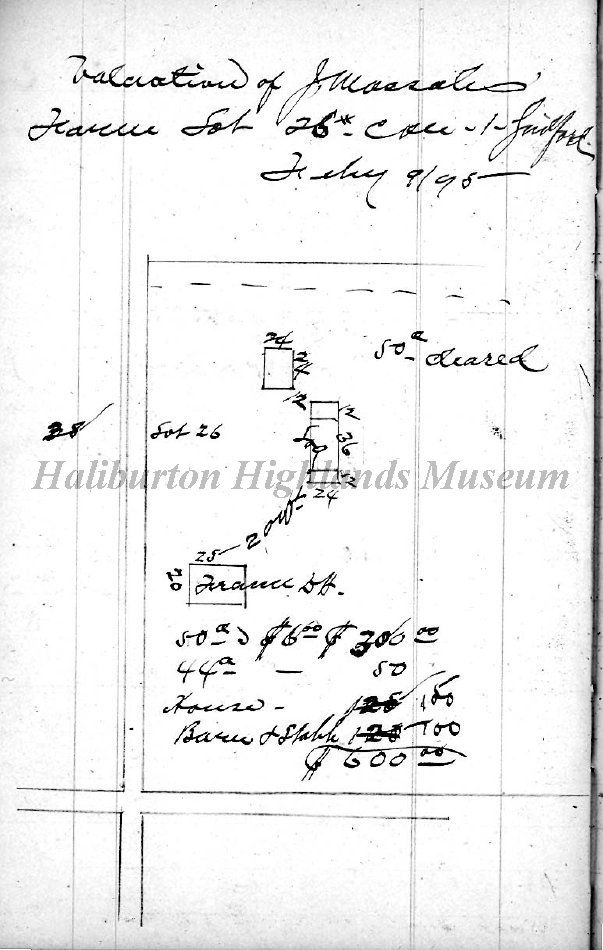 Valuation of J. Massales
Farm Lot 26 Con - 1 - Guilford
Feby 9/95
24
50 a cleared
24
12
12
38
Lot 26
Log
36
Haliburton Highlands Museum
24
12
25
20
Frame DH.
50 a @ $6 00 $ 300 00
44 a — 50
House - 125 150
Barn & Stable 125 100
$ 600 00